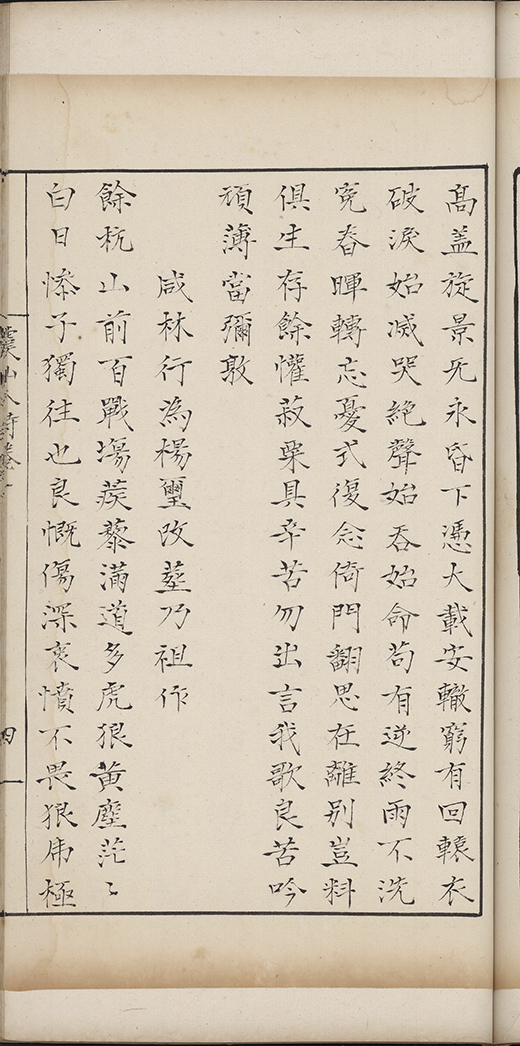 高盖旋景旡永昏下憑大載安轍窮有回轅衣
破淚始滅哭絶聲始吞始命苟有逆終雨不洗
寃春暉轉忘憂式復念倚門翻思在離别豈料
俱生存餘懽菽粟具辛苦勿出言我歌良苦吟
頑薄當彌敦
咸林行為楊璽改塟乃祖作
餘杭山前百戰塲蒺藜滿道多虎狼黄塵茫〻
白日慘子獨往也良慨傷深衷憤不畏狼虎極
四